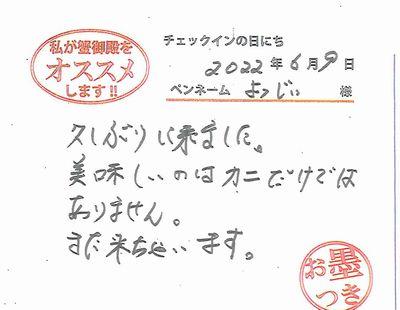 私が蟹御殿を
オススメ
します!!
チェックインの日にち
2022年6月9日
ペンネーム よっじぃ 様
久しぶりに来ました。
美味しいのはカニだけでは
ありません。
また来ちゃいます。
お墨
つき